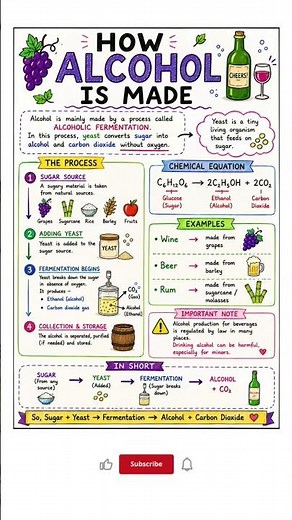 HOW
ALCOHOL
IS MADE
CHEERS!
Alcohol is mainly made by a process called
ALCOHOLIC FERMENTATION.
In this process, yeast converts sugar into
alcohol and carbon dioxide without oxygen.
Yeast is a tiny
living organism
that feeds on
sugar.
THE PROCESS
1 SUGAR SOURCE
A sugary material is taken
from natural sources.
Grapes Sugarcane Rice Barley Fruits
2 ADDING YEAST
Yeast is added to the
sugar source.
YEAST
3 FERMENTATION BEGINS
Yeast breaks down the sugar
in absence of oxygen.
It produces –
• Ethanol (alcohol)
• Carbon dioxide gas
CO₂
(Gas)
Alcohol
(Ethanol)
4 COLLECTION & STORAGE
The alcohol is separated, purified
(if needed) and stored.
CHEMICAL EQUATION
C₆H₁₂O₆ → 2C₂H₅OH + 2CO₂
Glucose
(Sugar)
Ethanol
(Alcohol)
Carbon
Dioxide
EXAMPLES
• Wine → made from
grapes
• Beer → made from
barley
• Rum → made from
sugarcane /
molasses
IMPORTANT NOTE
Alcohol production for beverages
is regulated by law in many
places.
Drinking alcohol can be harmful,
especially for minors.
IN SHORT
SUGAR
(From any
source)
→ YEAST
(Added)
→ FERMENTATION
(Sugar breaks
down)
→ ALCOHOL
+ CO₂
So, Sugar + Yeast → Fermentation → Alcohol + Carbon Dioxide
Subscribe